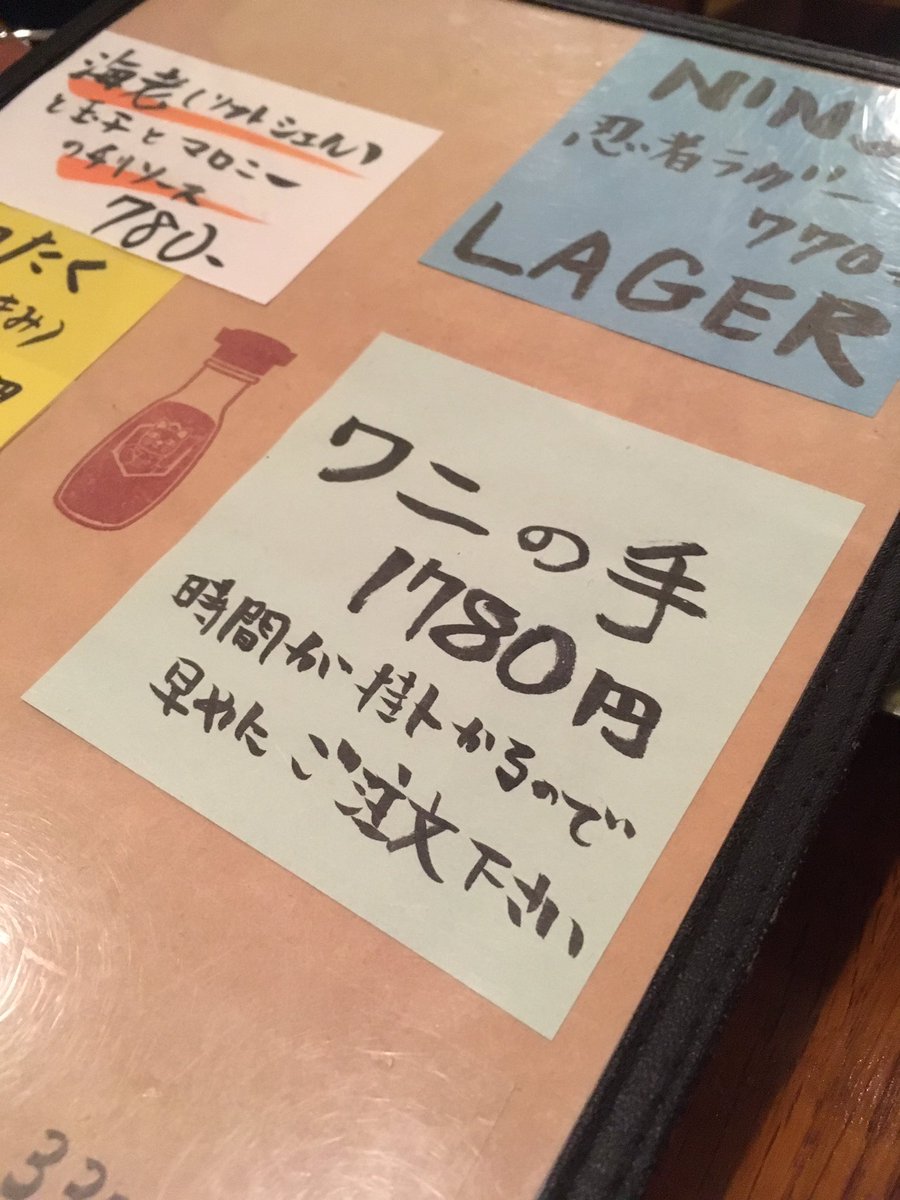 海老(ソフトシェル)
と玉子とマロニー
のチリソース
780-
NIN
忍者ラガー
770-
LAGER
たく
み)
円
ワニの手
1780円
時間が掛かるので
早やにご注文下さい